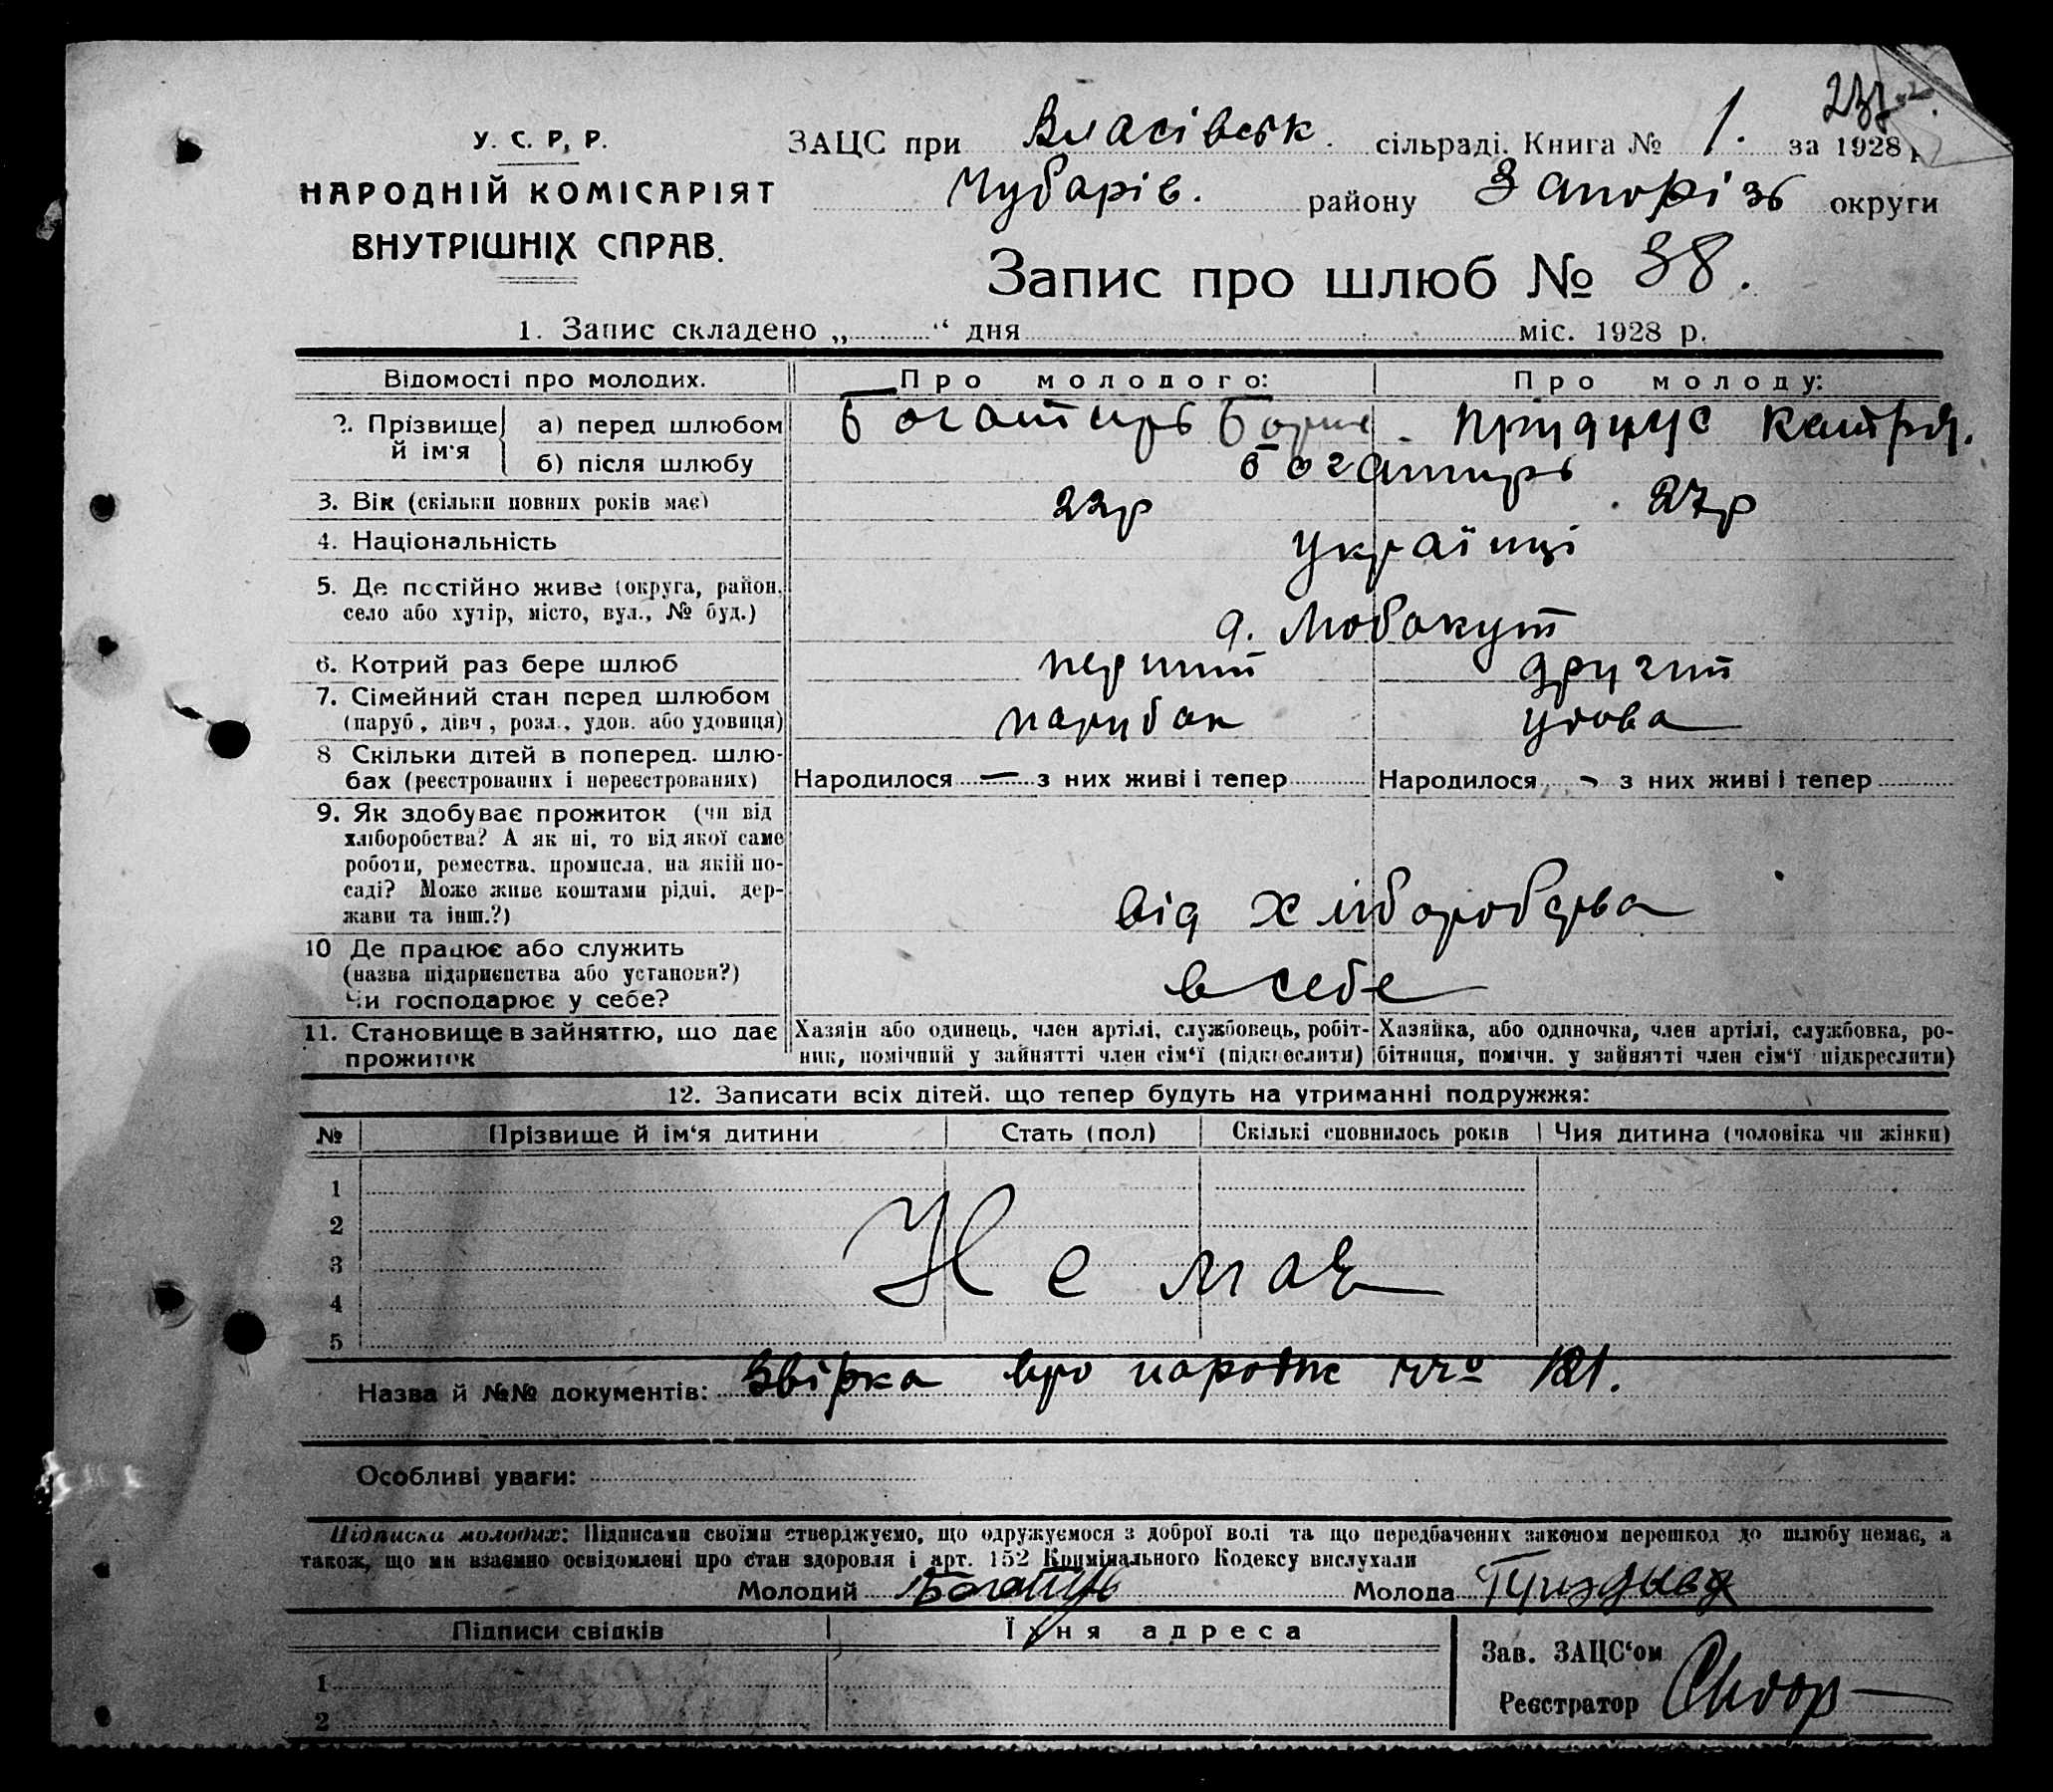 У. С. Р. Р.
НАРОДНІЙ КОМІСАРІЯТ
ВНУТРІШНІХ СПРАВ.
ЗАЦС при Власівськ. сільраді. Книга № 1. за 1928
Чубарів. району Запорізь округи
Запис про шлюб № 38.
1. Запис складено „ “ дня міс. 1928 р.
Відомості про молодих. Про молодого: Про молоду:
2. Прізвище й ім‘я а) перед шлюбом Богатирь Катря.
б) після шлюбу Богатирь
3. Вік (скільки повних років має) 22р 27р
4. Національність Українці
5. Де постійно живе (округа, район,
село або хутір, місто, вул., № буд.)
6. Котрий раз бере шлюб перший другий
7. Сімейний стан перед шлюбом
(паруб., дівч., розл., удов. або удовиця) парубак удова
8 Скільки дітей в поперед. шлю-
бах (реєстрованих і нереєстрованих) Народилося — з них живі і тепер Народилося - з них живі і тепер
9. Як здобуває прожиток (чи від
хліборобства? А як ні, то від якої саме
роботи, ремества, промисла, на якій по-
саді? Може живе коштами рідні, дер-
жави та інш.?) від хліборобства
10 Де працює або служить
(назва підприємства або установи?)
Чи господарює у себе? в себе
11. Становище в зайняттю, що дає
прожиток
Хазяін або одинець, член артілі, службовець, робіт-
ник, помічний у зайнятті член сім‘ї (підкреслити)
Хазяйка, або одиночка, член артілі, службовка, ро-
бітниця, помічн. у зайнятті член сім‘ї підкреслити)
12. Записати всіх дітей. що тепер будуть на утриманні подружжя:
№ Прізвище й ім‘я дитини Стать (пол) Скількі сповнилось років Чия дитина (чоловіка чи жінки)
1
2
3
4
5
Не має
Назва й №№ документів: Звірка про народж 121.
Особливі уваги:
Підписи молодих: Підписами своїми стверджуємо, що одружуємося з доброї волі та що передбачених законом перешкод до шлюбу немає, а
також, що ми взаємно освідомлені про стан здоровля і арт. 152 Кримінального Кодексу вислухали
Молодий Молода
Підписи свідків Їхня адреса
1
2
Зав. ЗАЦС‘ом
Реєстратор